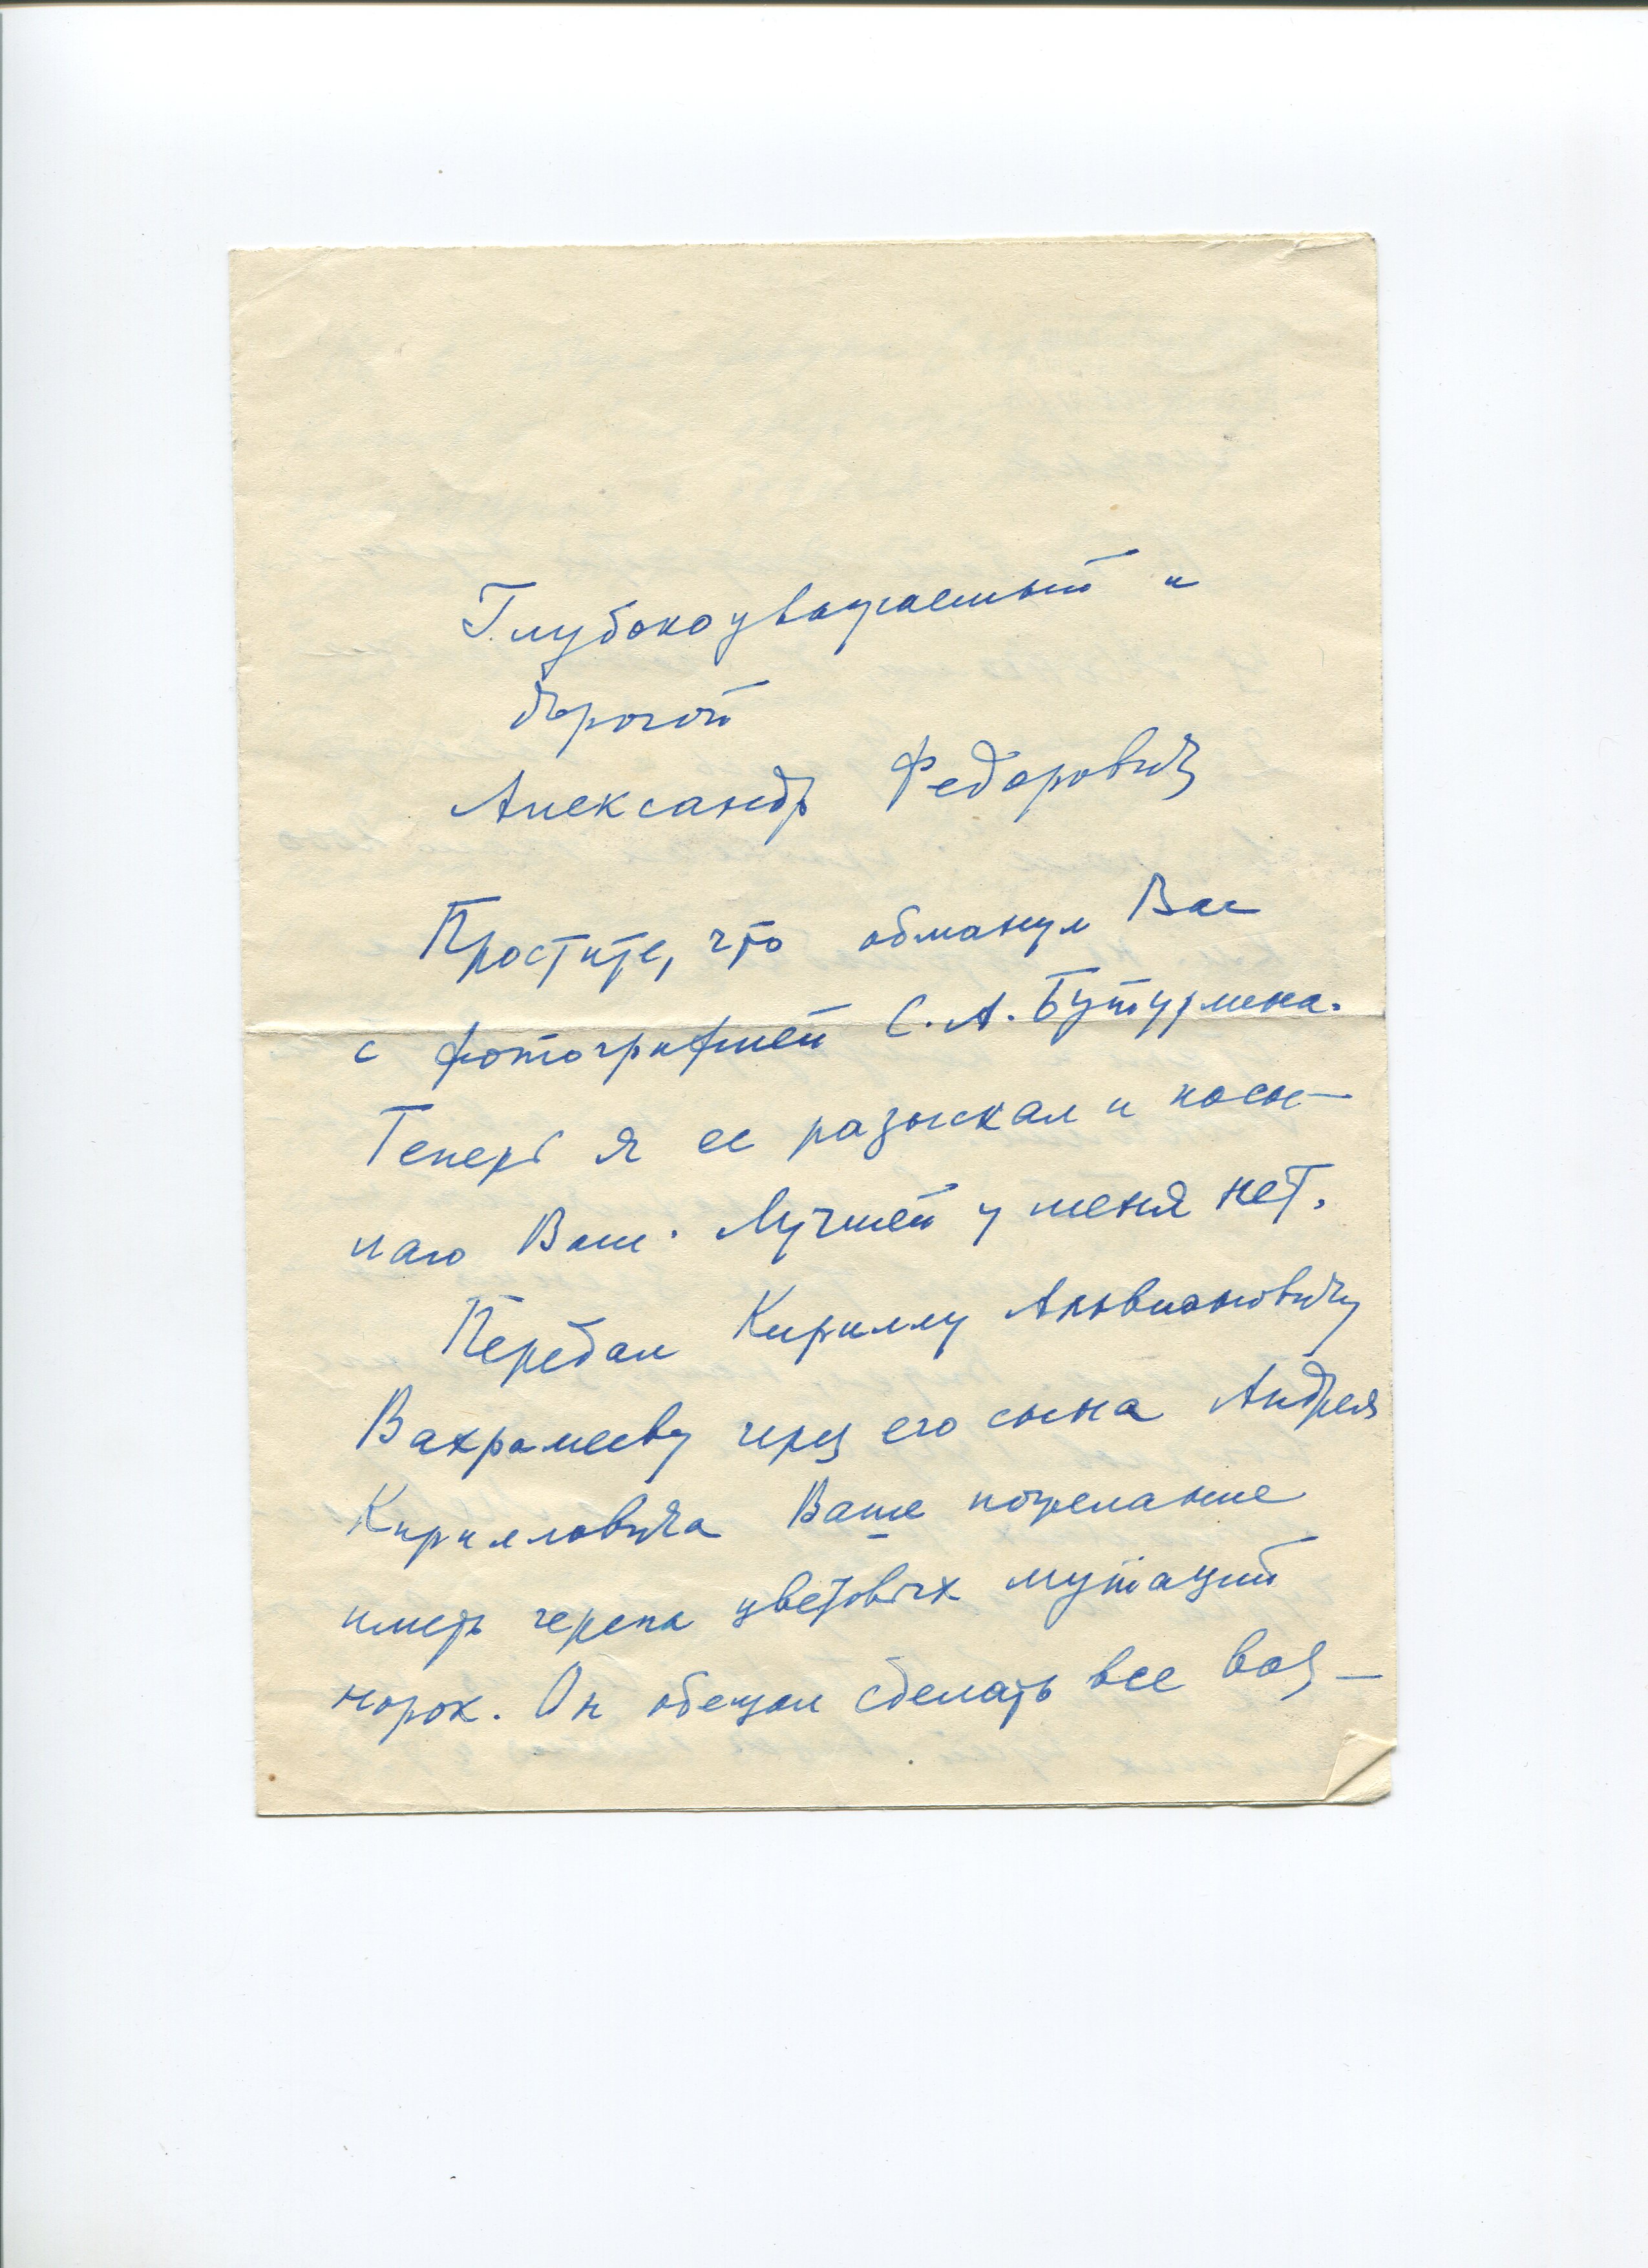 Глубокоуважаемый и
дорогой
Александр Федорович
Простите, что обманул Вас
с фотографией С. А. Бутурлина.
Теперь я ее разыскал и посы-
лаю Вам. Лучшей у меня нет.
Передал Кириллу
Вахрамееву через его сына Андрея
Кирилловича Ваше пожелание
иметь черепа цветовых мутаций
норок. Он обещал сделать все воз-